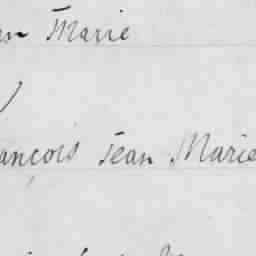 an Marie
ançois Jean Marie